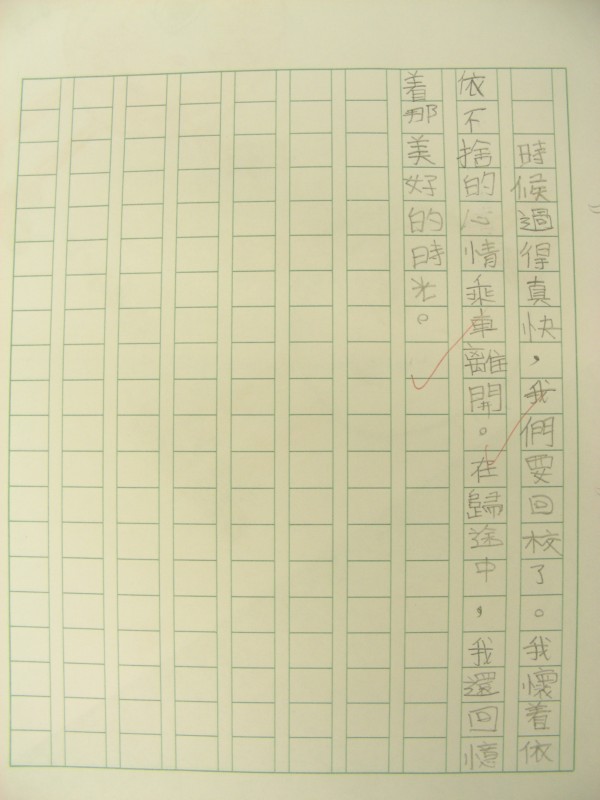 時候過得真快，我們要回校了。我懷着依
依不捨的心情乘車離開。在歸途中，我還回憶
着那美好的時光。